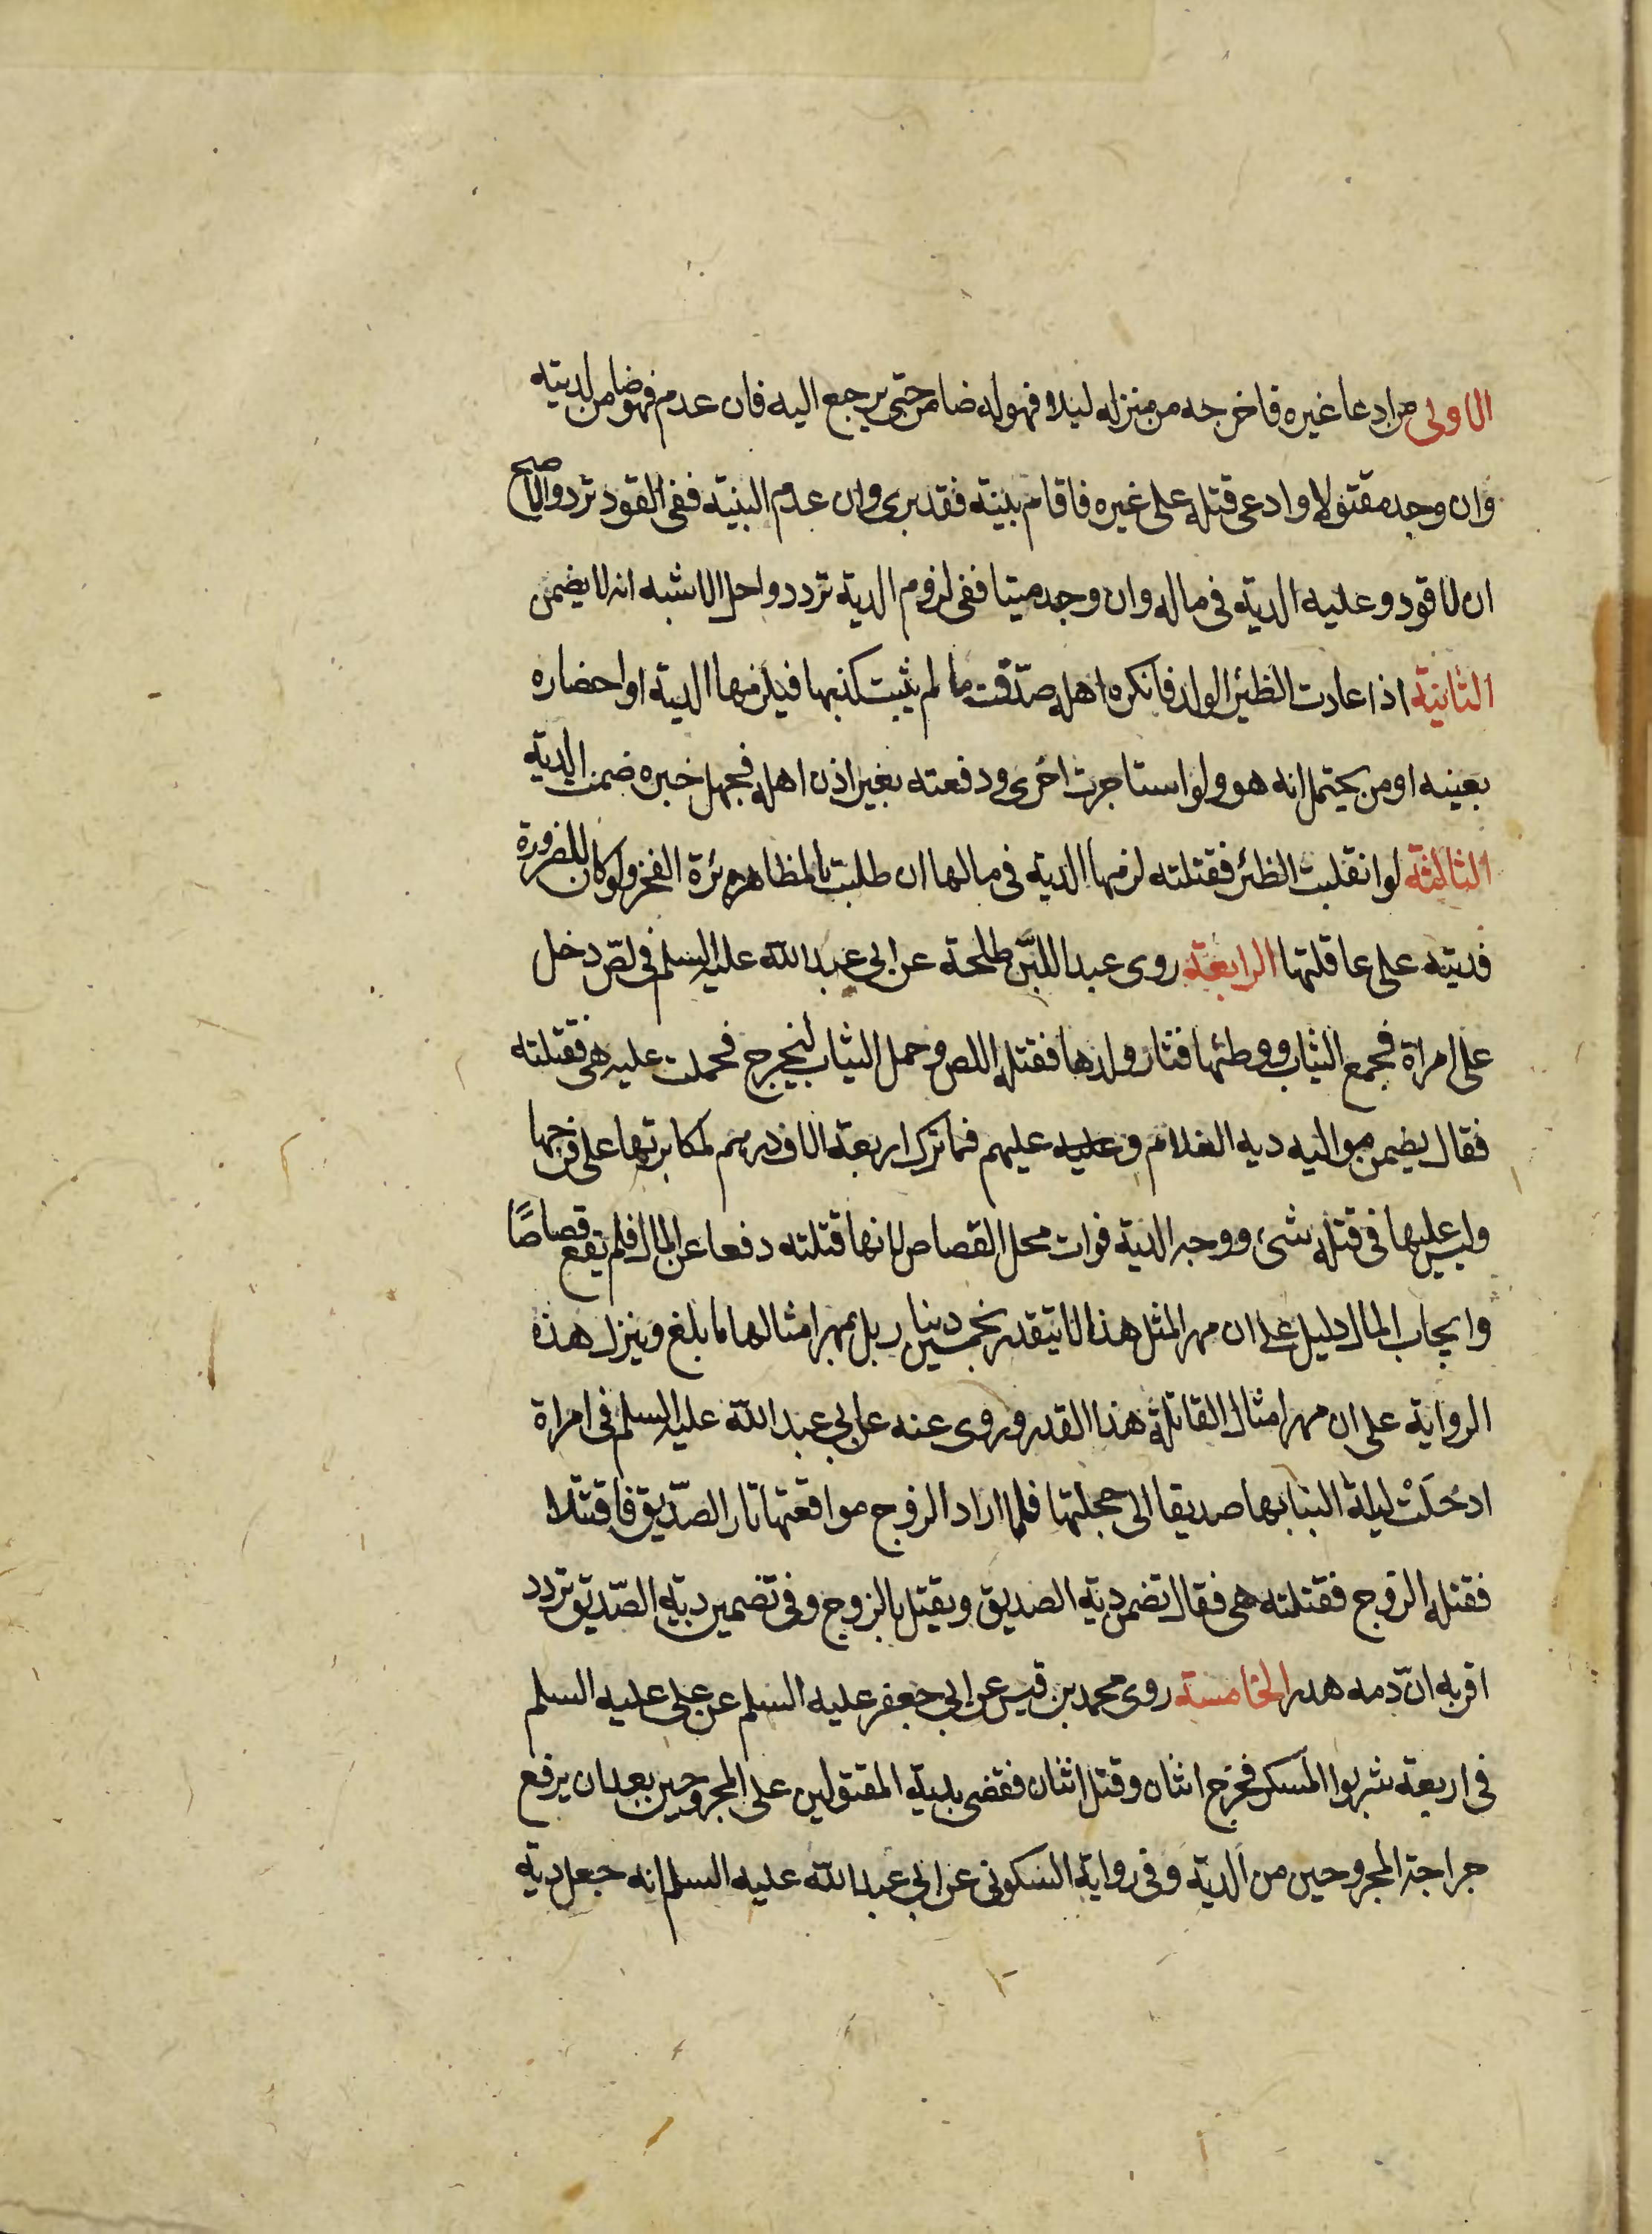 الاولى من ادعا غيره فاخرجه من منزله ليلا فهو له ضامن حتى يرجع اليه فان عدم فهو ضامن لديته
وان وجد مقتولا وادعى قتله على غيره فاقام بينة فقد برى وان عدم البينة ففى القود تردد والاصح
ان لا قود وعليه الدية فى ماله وان وجد ميتا ففى لزوم الدية تردد واحل الاشبه انه لا يضمن
الثانية اذا عادت الظئر الولد فانكره اهله صدّقت ما لم يثبت كذبها فيلزمها الدية او احضاره
بعينه او من يحتمل انه هو ولو استاجرت اخرى ودفعته بغير اذن اهله فجهل خبره ضمنت الدية
الثالثة لو انقلبت الظئر فقتلته لزمها الدية فى مالها ان طلبت بالمظاهرة الفخر ولو كان للضرورة
فديته على عاقلتها الرابعة روى عبد الله بن طلحة عن ابى عبد الله عليه السلم فى لصّ دخل
على امراة فجمع الثياب ووطئها فثار ولدها فقتله اللص وحمل الثياب ليخرج فحملت عليه هى فقتلته
فقال يضمن مواليه ديه الغلام وعليه عليهم فما ترك اربعة الاف درهم لمكابرتها على فرجها
وليس عليها فى قتله شىء ووجه الدية فوات محل القصاص لانها قتلته دفعا عن المال فلم يقع قصاصًا
وايجاب المال دليل على ان مهر المثل هذا لا يتقدر بخمسين دينار بل بمهر امثالها ما بلغ وينزل هذه
الرواية على ان مهر امثال القاتلة هذا القدر وروى عنه عن ابى عبد الله عليه السلم فى امراة
ادخَلَتْ ليلة البنا بها صديقا الى حجلتها فلما اراد الزوج مواقعتها ثار الصّديق فاقتتلا
فقتله الزوج فقتلته هى فقال تضمن دية الصديق ويقتل بالزوج وفى تضمين دية الصّديق تردد
اقربه انّ دمه هدر الخامسة روى محمد بن قيس عن ابى جعفر عليه السلم عن على عليه السلم
فى اربعة شربوا المسكر فجرح اثنان وقتل اثنان فقضى بدية المقتولين على المجروحين بعد ان يرفع
جراحة المجروحين من الدية وفى رواية السكونى عن ابى عبد الله عليه السلم انه جعل دية